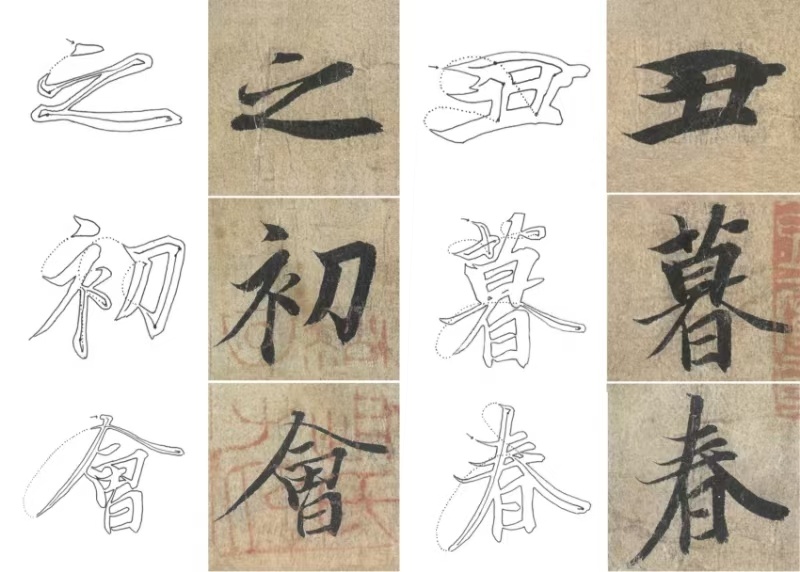 丑暮春
丑暮春
之初會
之初會